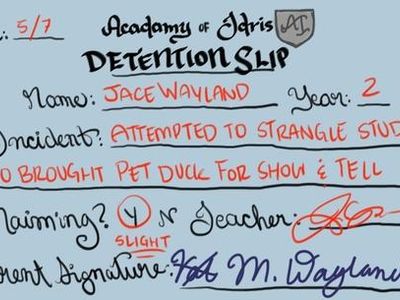 : 5/7
Academy of Idris AI
DETENTION SLIP
Name: JACE WAYLAND Year: 2
Incident: ATTEMPTED TO STRANGLE STUD
O BROUGHT PET DUCK FOR SHOW & TELL
aiming? Y N Teacher:
SLIGHT
arent Signature: M. Wayland